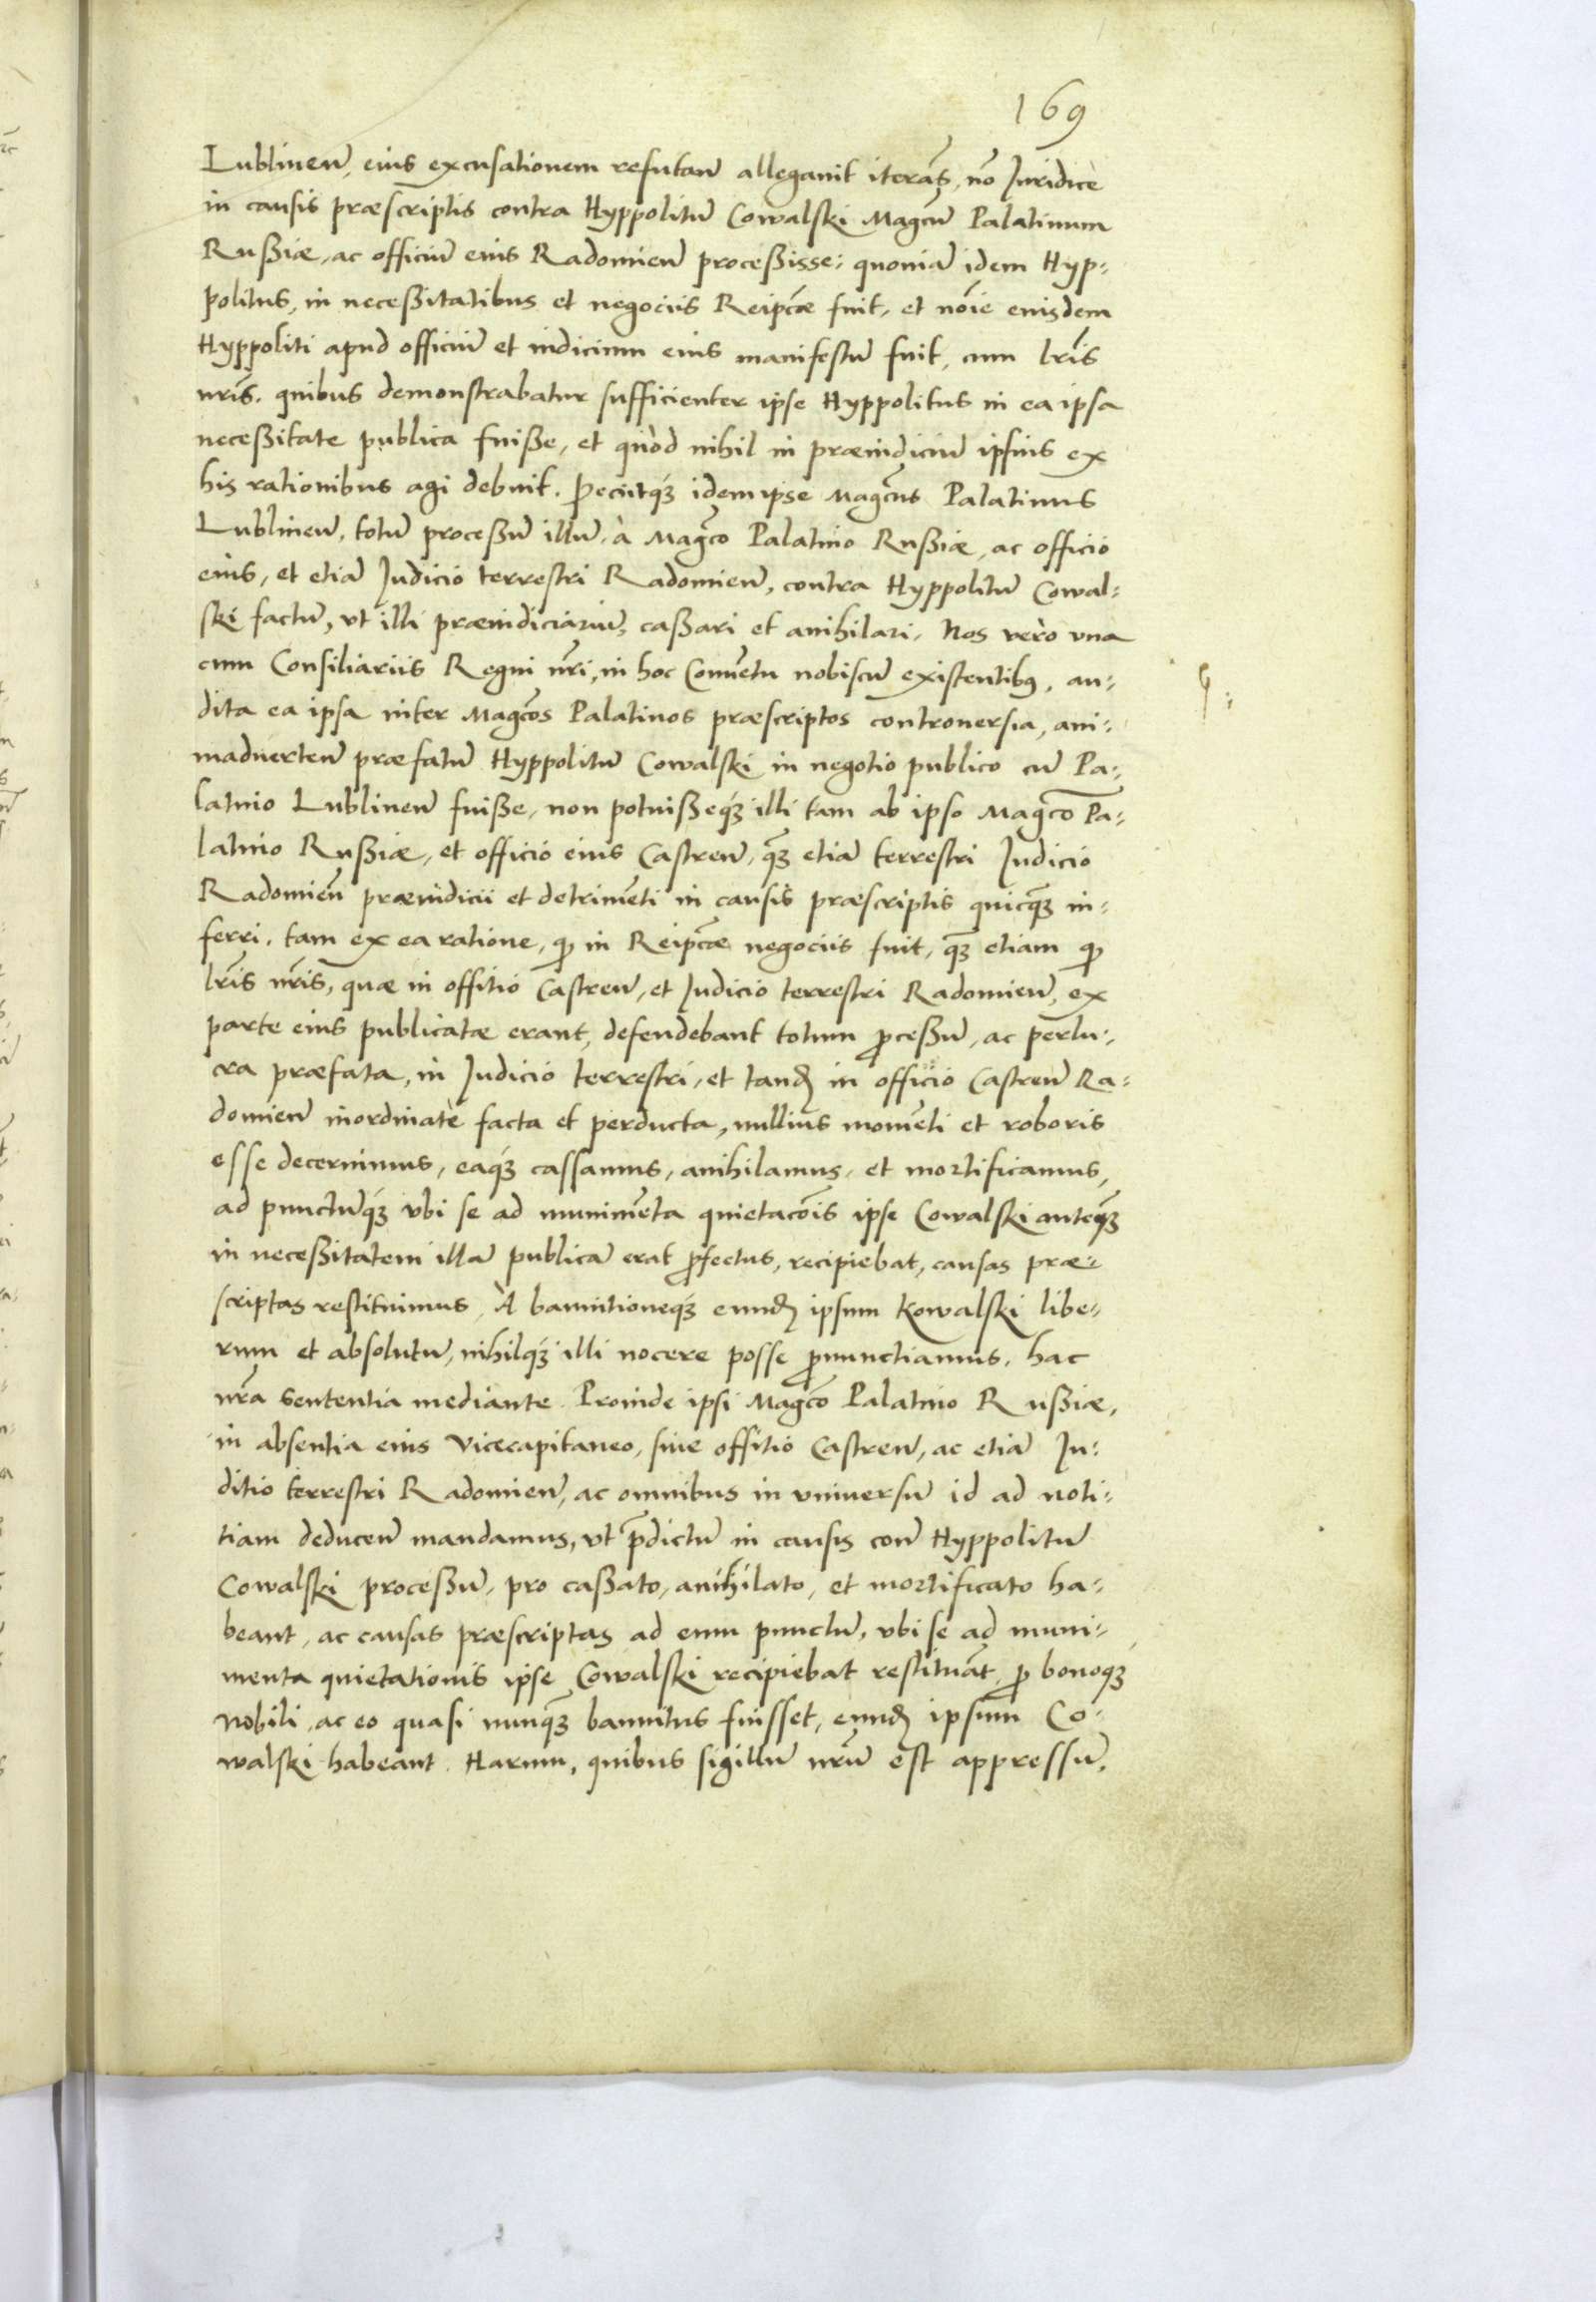 169
Lublineñ, eius excusationem refutañ allegavit iterãs, nõ Juridicè
in causis præscriptis contra Hyppolitũ Cowalski Magcũ Palatinum
Rußiæ, ac officiũ eius Radomieñ proceßisse: quoniã idem Hyp-
politus, in neceßitatibus et negociis Reipcæ fuit, et nõie eiusdem
Hyppoliti apud officiũ et iudicium eius manifestũ fuit, cum lris
nris, quibus demonstrabatur sufficienter ipse Hyppolitus in ea ipsa
neceßitate publica fuiße, et quòd nihil in præiudiciũ ipsius ex
his rationibus agi debuit. Peciitq́ idem ipse Magcus Palatinus
Lublineñ, totũ proceßũ illũ, à Magco Palatino Rußiæ, ac officio
eius, et etiã Judicio terrestri Radomieñ, contra Hyppolitũ Cowal-
ski factũ, vt illi præiudiciariũ, caßari et anihilari. Nos verò vna
cum Consiliariis Regni nri, in hoc Conuẽtu nobiscũ existentibus, au-
dita ea ipsa inter Magcos Palatinos præscriptos controuersia, ani-
maduerteñ præfatũ Hyppolitũ Cowalski in negotio publico cũ Pa-
latino Lublineñ fuiße, non potuißeq́ illi tam ab ipso Magco Pa-
latino Rußiæ, et officio eius Castreñ, q̃ etiã terrestri Judicio
Radomieñ præiudicii et detrimẽti in causis præscriptis quicq̃ in-
ferri, tam ex ea ratione, ꝙ in Reipcæ negociis fuit, q̃ etiam ꝙ
lris nris, quæ in offitio Castreñ, et Judicio terrestri Radomieñ, ex
parte eius publicatæ erant, defendebant totum ꝓceßũ, ac perlu-
cra præfata, in Judicio terrestri, et tandẽ in officio Castreñ Ra-
domieñ inordinatè facta et perducta, nullius momẽti et roboris
esse decernimus, eaq́ cassamus, anihilamus, et mortificamus,
ad punctũq́ vbi se ad munimẽta quietacõis ipse Cowalski anteq̃
in neceßitatem illã publicã erat ꝓfectus, recipiebat, causas præ-
scriptas restituimus, A bannitioneq́ eundẽ ipsum Kowalski libe-
rum et absolutũ, nihilq́ illi nocere posse ꝓnunctiamus, hac
nra sententia mediante. Proinde ipsi Magco Palatino Rußiæ,
in absentia eius Vicecapitaneo, siue offitio Castreñ, ac etiã Ju-
ditio terrestri Radomieñ, ac omnibus in vniuersũ id ad noti-
tiam deduceñ mandamus, vt p̃dictũ in causis coñ Hyppolitũ
Cowalski proceßũ, pro caßato, anihilato, et mortificato ha-
beant, ac causas præscriptas ad eum punctũ, vbi se ad muni-
menta quietationis ipse Cowalski recipiebat restituãt, ꝓ bonoq́
nobili, ac eo quasi nunq̃ bannitus fuisset, eundẽ ipsum Co-
walski habeant. Harum, quibus sigillũ nrũ est appressũ,